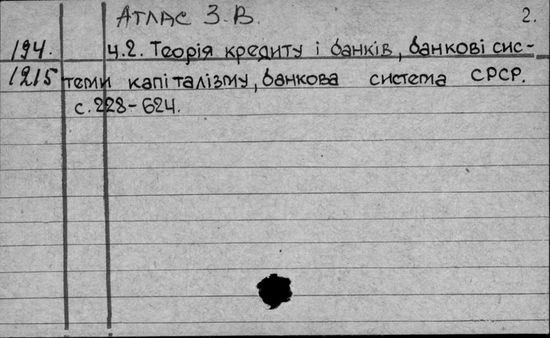 Атлас З.В. 2.
194. ч.2. Теорія кредиту і банків, банкові сис-
1215 теми капіталізму, банкова система СРСР.
с.228-624.